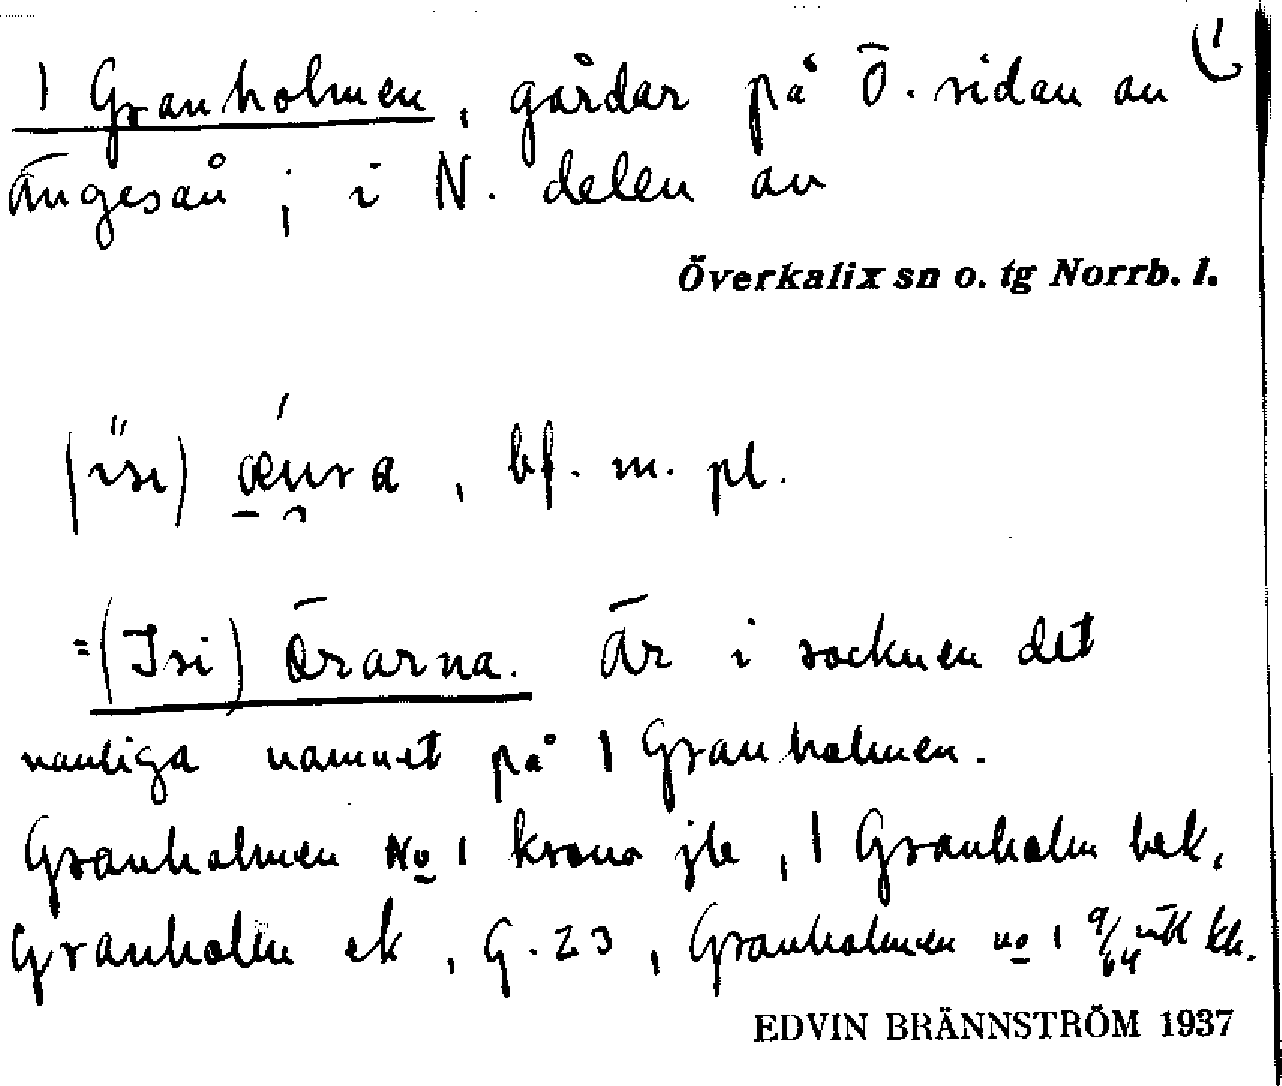 1 Granholmen, gårdar på Ö. sidan av
Ängesån; i N. delen av
Överkalix sn o. tg Norrb. l.
(isi) , bf. m. pl.
=(Isi) örarna. Är i socknen det
vanliga namnet på 1 Granholmen.
Granholmen No 1 krono jb, 1 Granholm hek.
Granholm ek, G. 23, Granholmen no 1 9/64 mtl kh.
EDVIN BRÄNNSTRÖM 1937